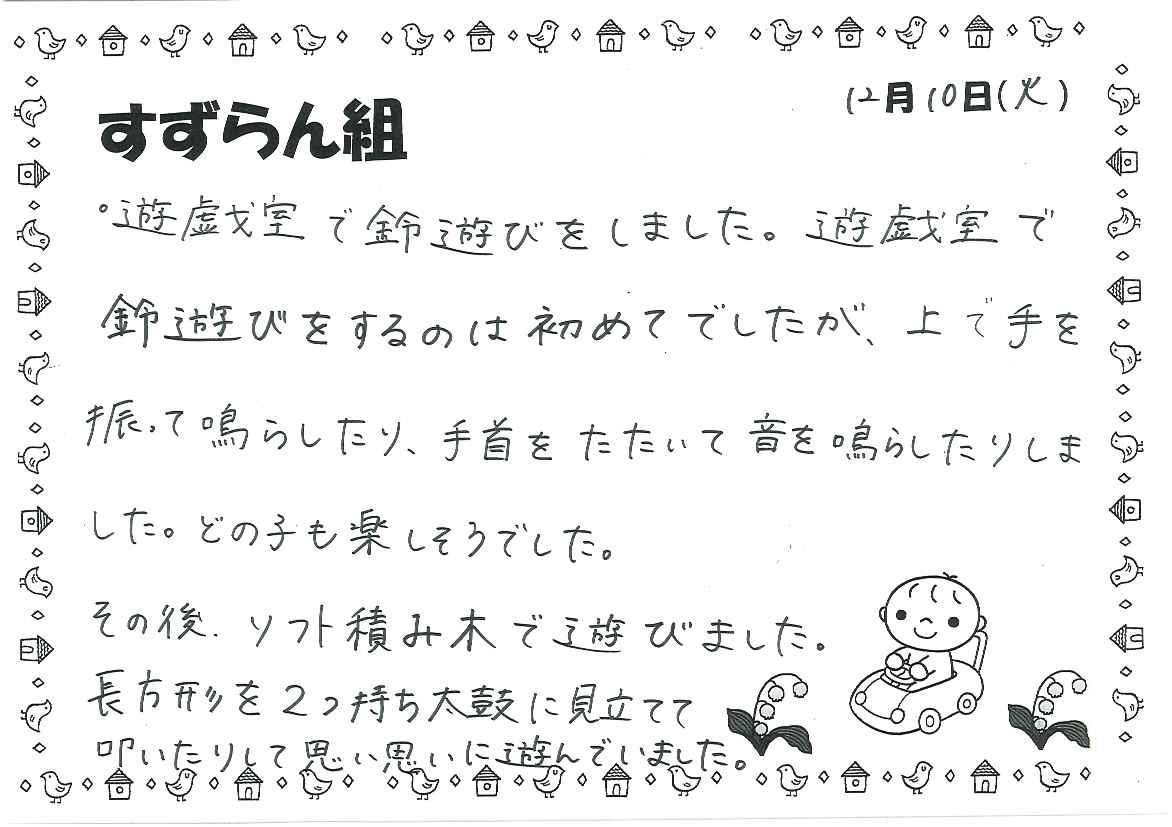 12月10日(火)
すずらん組
°遊戯室で鈴遊びをしました。遊戯室で
鈴遊びをするのは初めてでしたが、上で手を
振って鳴らしたり、手首をたたいて音を鳴らしたりしま
した。どの子も楽しそうでした。
その後、ソフト積み木で遊びました。
長方形を2つ持ち太鼓に見立てて
叩いたりして思い思いに遊んでいました。